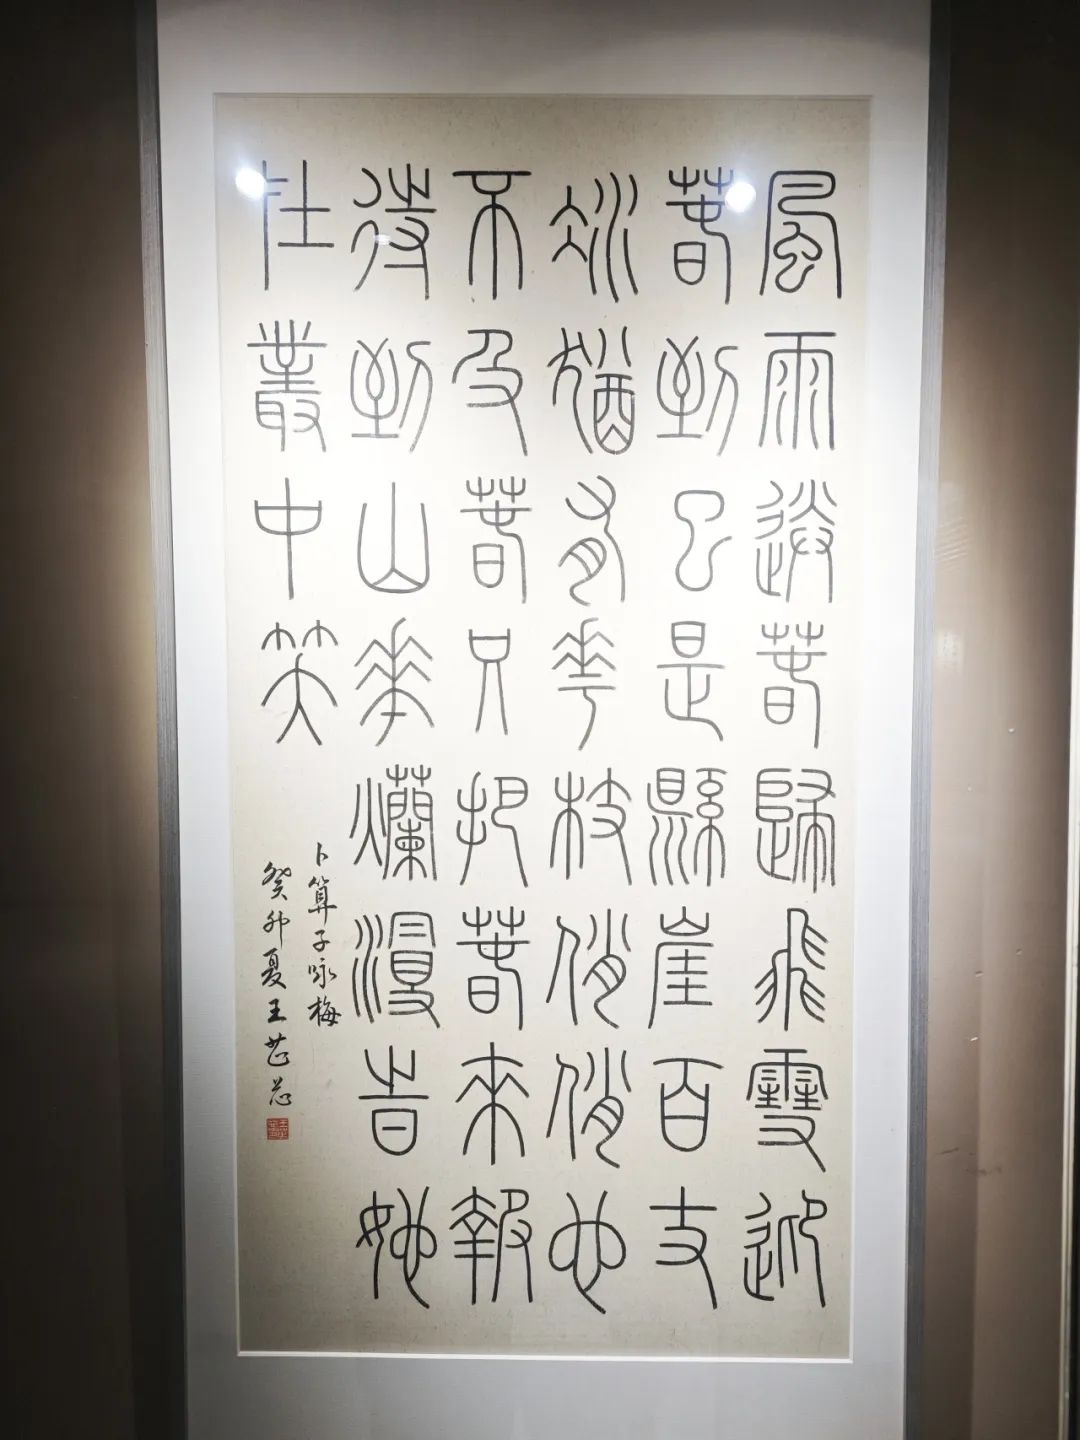 風雨送春歸飛雪迎
春到已是縣崖百丈
冰猶有花枝俏俏也
不及春只把春來報
待到山花爛漫旹她
在叢中笑
卜算子咏梅
癸卯夏王芷芯